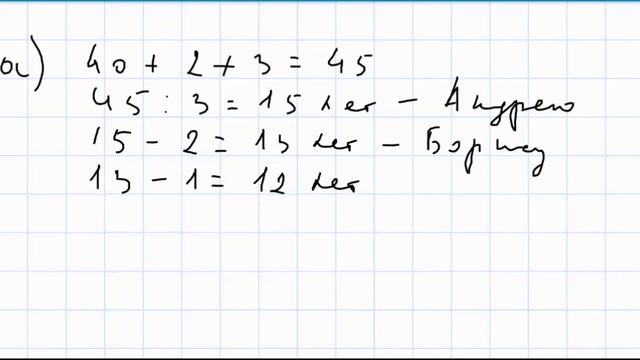 а) 40 + 2 + 3 = 45
45 : 3 = 15 лет – Андрею
15 – 2 = 13 лет – Борису
13 – 1 = 12 лет